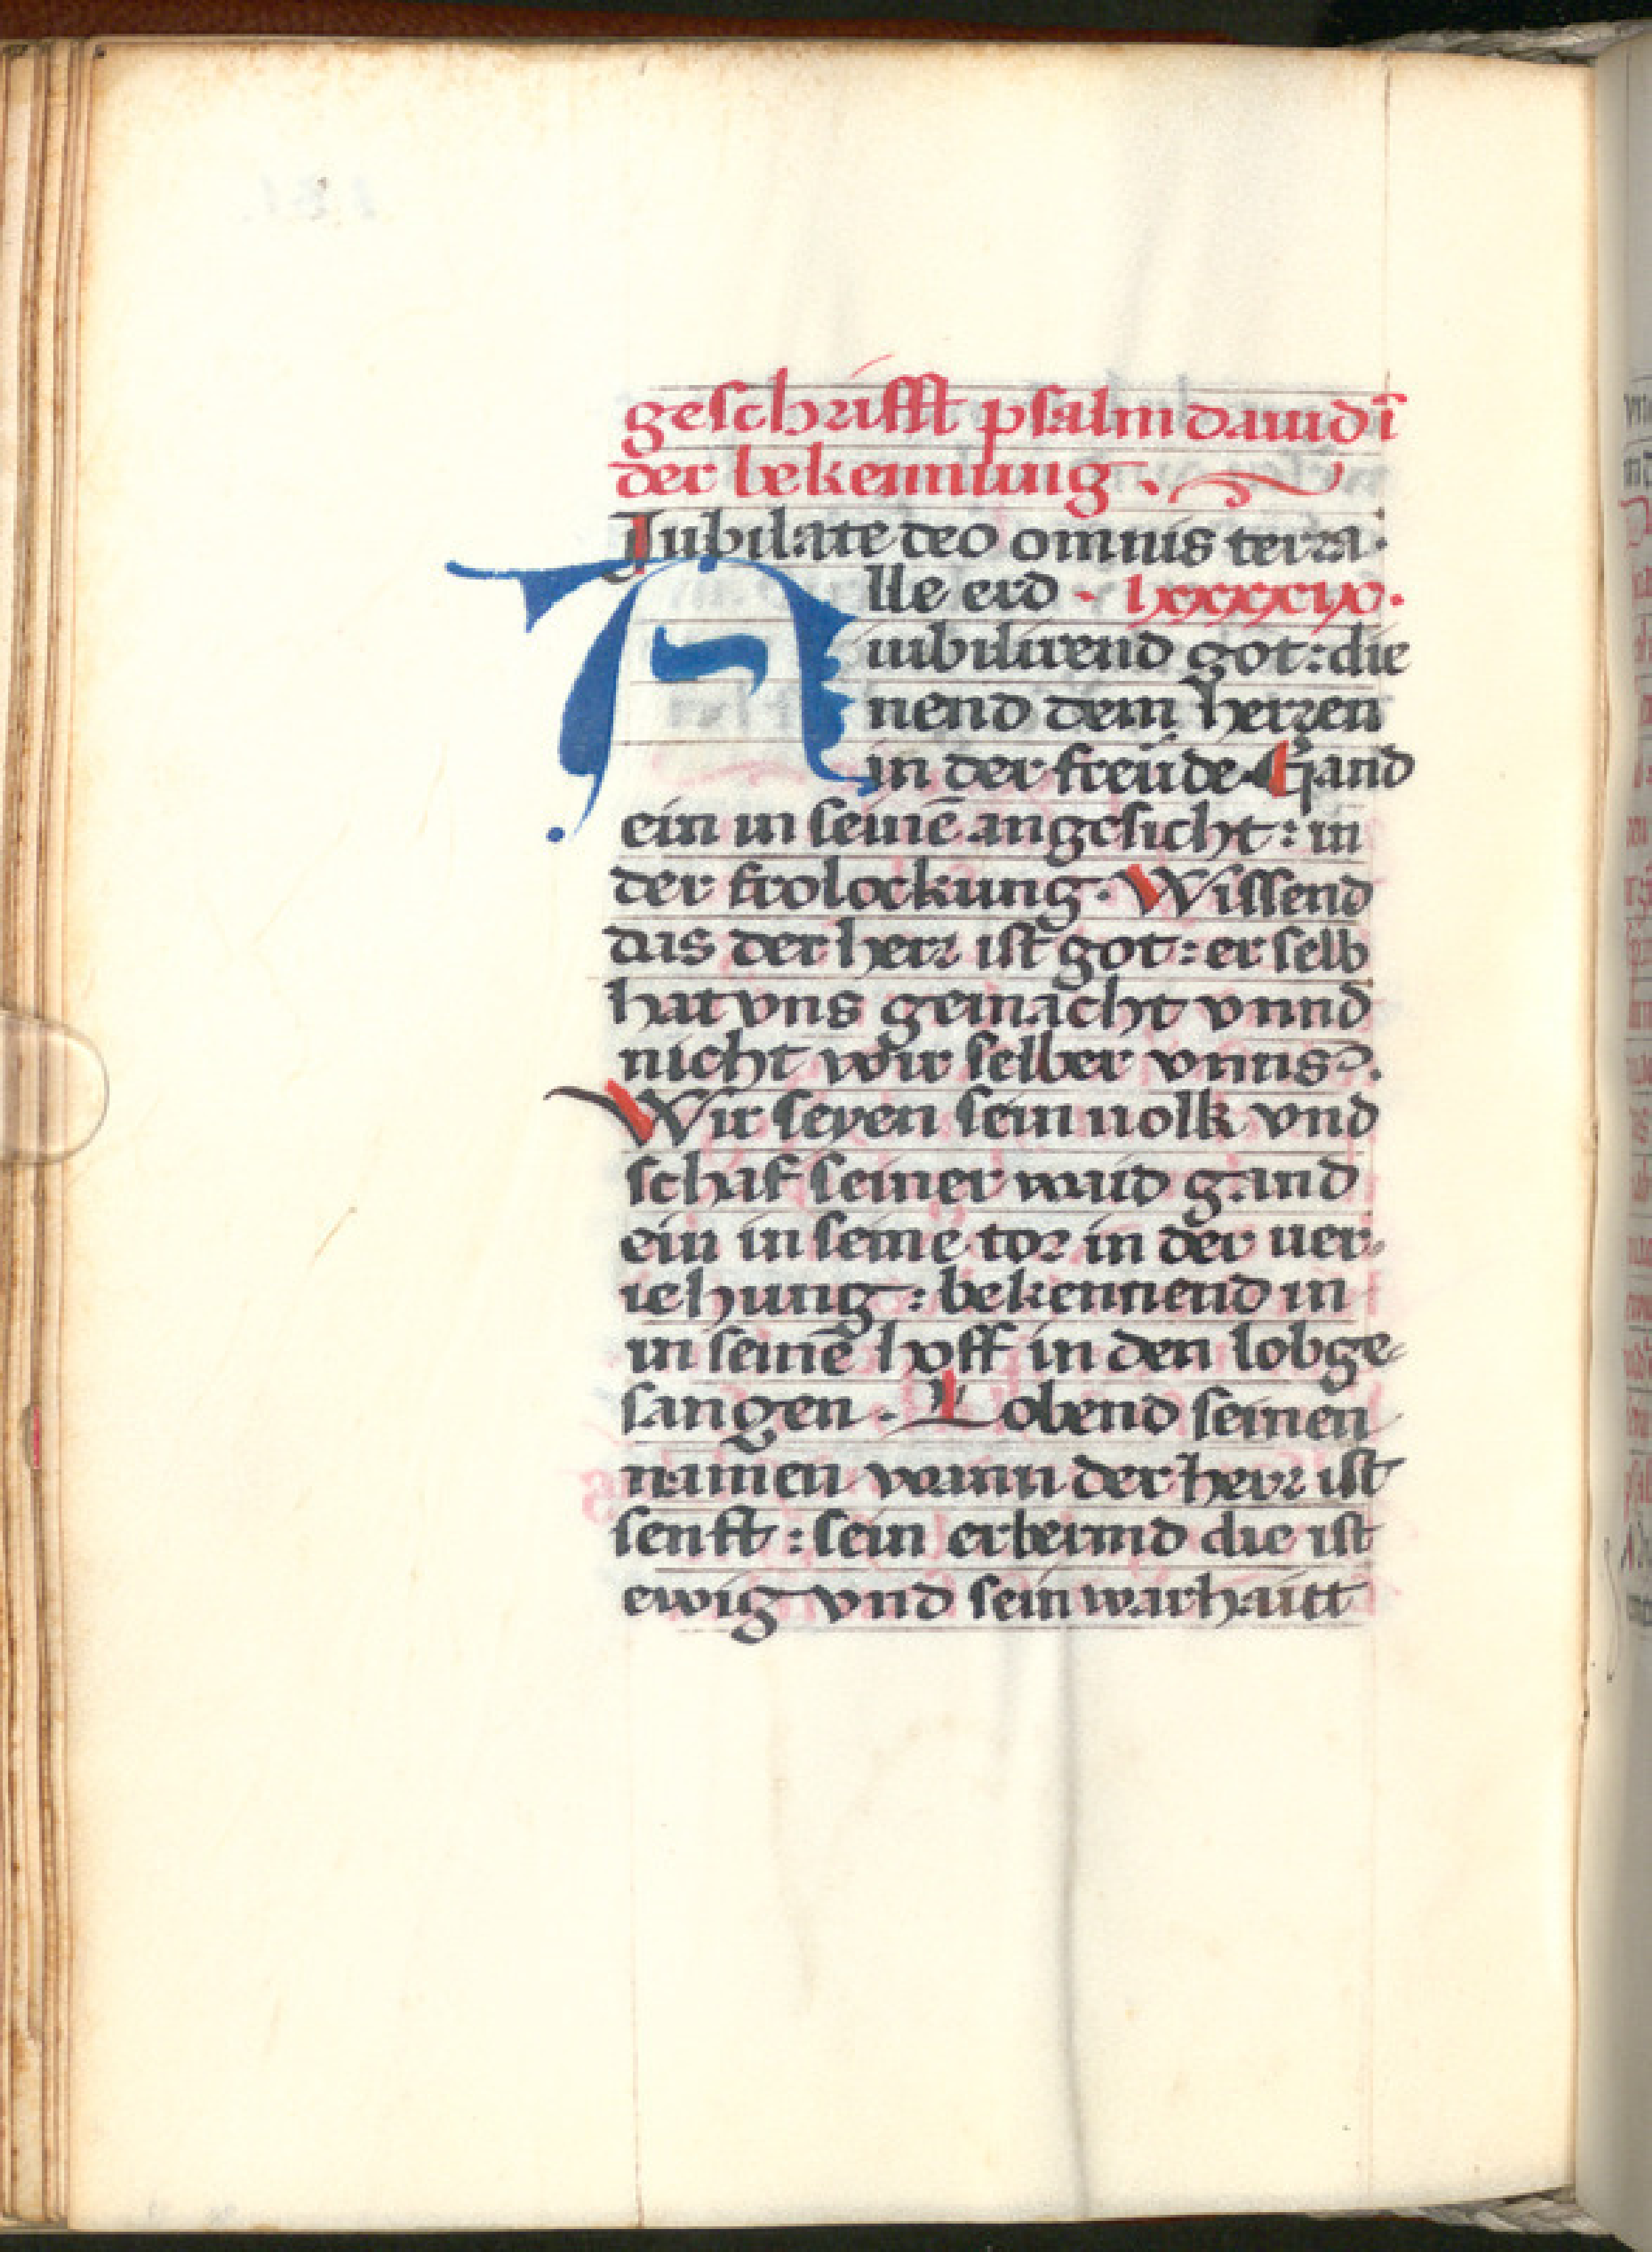 geschrifft psalm dauid ī
der bekennung.
Jubilate deo omnis terra.
Alle erd . lxxxxix.
iubilirend got: die
nend dem herren
in der freude. Gand
ein in seinē angesicht: in
der frolockung. Wissend
das der herr ist got: er selb
hat vns gemacht vnnd
nicht wir selber vnns.
Wir seyen sein uolk vnd
schaf seiner waid gand
ein in seine tor in der uer
iehung: bekennend in
in seinē hoff in den lobge
sangen. Lobend seinen
namen wann der herr ist
senfft: sein erbermd die ist
ewig vnd sein warhaitt